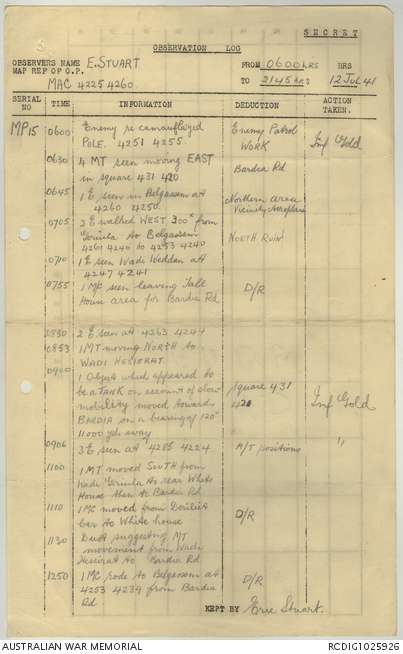 SECRET
OBSERVATION LOG
OBSERVERS NAME E. STUART FROM 0600 HRS HRS
MAP REF OF O.P. MAC 4225 4260. TO 2145 HRS 12 Jul 41
SERIAL NO TIME INFORMATION DEDUCTION ACTION TAKEN.
MP15 0600 Enemy re camouflaged Enemy Patrol Inf Gold
POLE. 4251 4255. WORK
0630 4 MT seen moving EAST Bardia Rd
in square 431 420
0645 1 E seen in Belgassem at Northern area
4260 4250. Vicinity Aeroplane
0705 2 E walked WEST 300x from NORTH RUIN
to Belgassem
4261 4240 to 4253 4240
0710 1 E seen Wadi Weddan at
4247 4241
0755 1 M/C seen leaving Tall D/R
House area for Bardia Rd.
0830 2 E seen at 4263 4244
0853 1 MT moving NORTH to
WADI HESIORAT.
0900
1 Object which appeared to square 431 Inf Gold
be a TANK on account of slow 421
mobility moved towards
BARDIA on a bearing of 120°
11000 yds away
0906 3 E seen at 4285 4224 A/T positions "
1100 1 MT moved SOUTH from
Wadi to rear White
House then to Bardia Rd
1110 1 MC moved from D/R
bar to White house
1130 Dust suggesting MT
movement from Wadi
Hesiorat to Bardia Rd.
1250 1 MC rode to Belgassem at D/R
4253 4234 from Bardia
Rd
KEPT BY Eric Stuart.
AUSTRALIAN WAR MEMORIAL RCDIG1025926